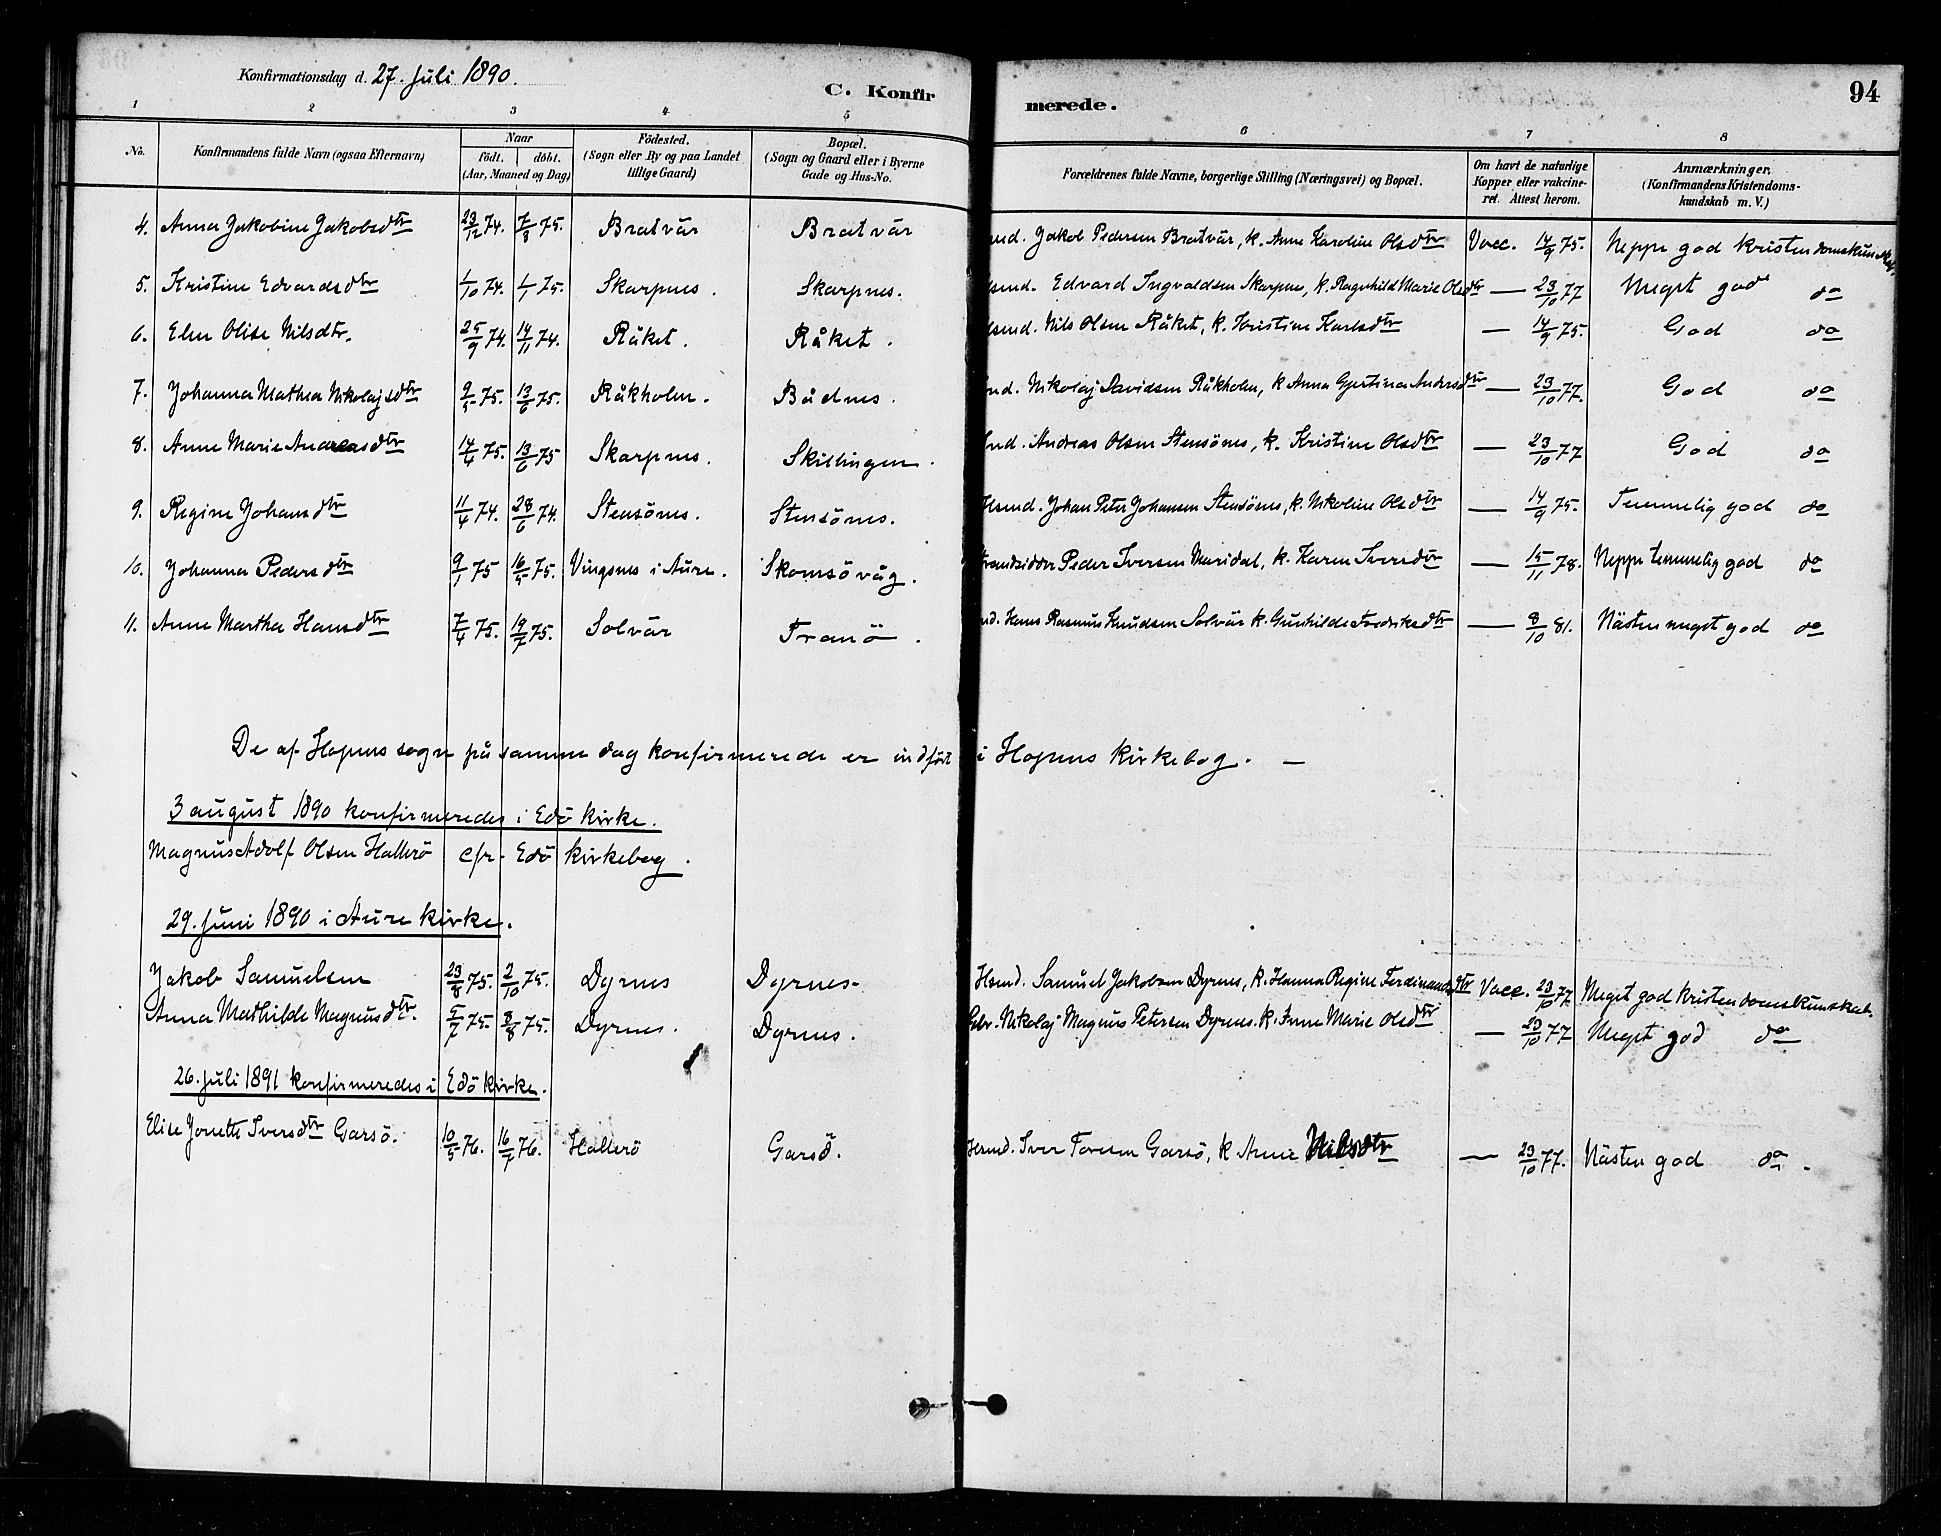 Konfirmationsdag d. 27. Juli 1890.
C. Konfirmerede.
94
1 2 3 4 5 6 7 8
No. Konfirmandens fulde Navn (ogsaa Efternavn) Naar födt. döbt. (Aar, Maaned og Dag) Födested. (Sogn eller By og paa Landet tillige Gaard) Bopæl. (Sogn og Gaard eller i Byerne Gade og Hus-No. Forældrenes fulde Navne, borgerlige Stilling (Næringsvei) og Bopæl. Om havt de naturlige Kopper eller vakcineret. Attest herom. Anmærkninger. (Konfirmandens Kristendomskundskab m. V.)
4. Anna Jakobine Jakobsdtr 23/12 74. 7/3 75. Bratvär Bratvär Jakob Pedersen Bratvär, k. Anne Karoline Olsdtr Vacc. 14/9 75. Neppe god Kristendomskundskab.
5. Kristine Edvardsdtr 1/10 74. 1/1 75. Skarpnes. Skarpnes. Edvard Ingvaldsen Skarpnes, k. Ragnhild Marie Olsdtr — 23/10 77 Meget god do
6. Elen Olise Nilsdtr. 25/9 74. 14/11 74. Råket. Råket. Nils Olsen Råket, k. Kristine Karlsdtr — 14/9 75. God do
7. Johanna Mathea Nikolajsdtr 9/5 75. 13/6 75. Råkholm. Bådnes. Nikolaj Davidsen Råkholm, k Anna Gjertina Andersdtr — 23/10 77. God do
8. Anne Marie Andreasdtr 14/4 75. 13/6 75 Skarpnes. Skillingen. Andreas Olsen Stensönes, k. Kristine Olsdtr — 23/10 77 God do
9. Regine Johansdtr 11/4 74. 28/6 74. Stensönes. Stensönes. Johan Peter Johansen Stensönes, k. Nikoline Olsdtr — 14/9 75. Temmelig god do
10. Johanna Pedersdtr 9/1 75 16/5 75. Vingsnes i Aure. Skomsövåg. Strandsidder Peder Iversen Maridal, k. Karen Iversdtr — 15/11 78. Neppe temmelig god do
11. Anne Martha Hansdtr 7/4 75. 19/7 75. Solvär Tranö. Hans Rasmus Knudsen Solvär k. Gunhilde Fredriksdtr — 8/10 81. Nästen meget god do
De af Hopens sogn på samme dag konfirmerede er indfört i Hopens Kirkebog. —
3 august 1890 konfirmeredes i Edö Kirke.
Magnus Adolf Olsen Hallerö cfr. Edö Kirkebog.
29. Juni 1890 i Aure Kirke.
Jakob Samuelsen 23/8 75. 2/10 75. Dyrnes Dyrnes. Hsmd. Samuel Jakobsen Dyrnes, k. Hanna Regine Ferdinandsdtr Vacc. 23/10 77 Meget god Kristendomskunskab.
Anna Mathilde Magnusdtr. 5/7 75. 8/8 75. Dyrnes. Dyrnes. Gbr. Nikolaj Magnus Petersen Dyrnes. k. Anne Marie Olsdtr — 23/10 77 Meget god do
26. juli 1891 konfirmeredes i Edö kirke.
Elise Jonette Iversdtr Garsö. 10/5 76. 16/7 76. Hallerö Garsö. Hsmd. Iver Toresen Garsö, k Anne Nilsdtr — 23/10 77. Nästen god do.